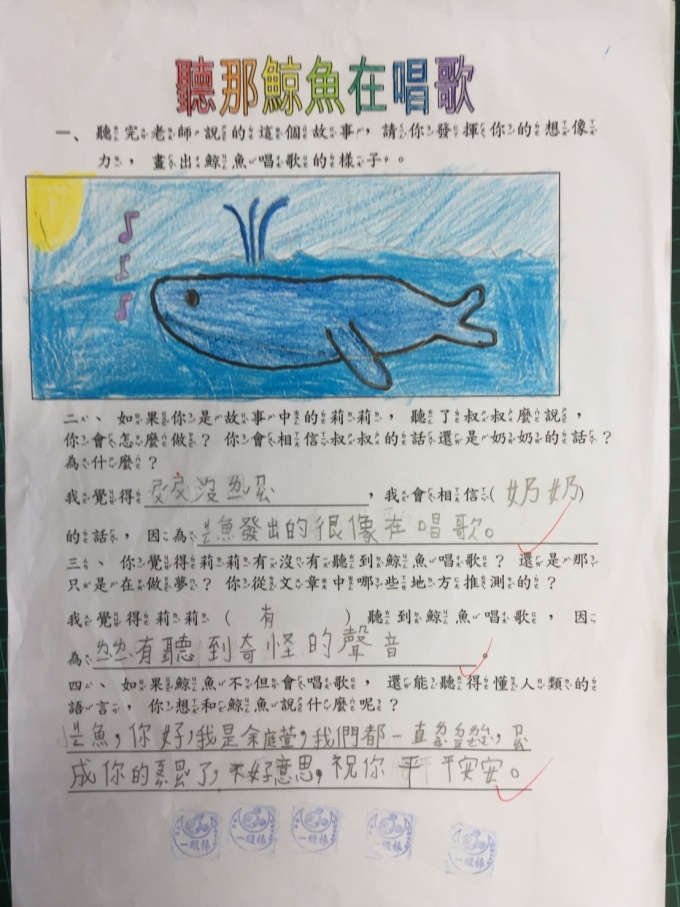 聽那鯨魚在唱歌
一、聽完老師說的這個故事，請你發揮你的想像
力，畫出鯨魚唱歌的樣子。
二、如果你是故事中的莉莉，聽了叔叔這麼說，
你會怎麼做？你會相信叔叔的話還是奶奶的話？
為什麼？
我覺得 沒 ，我會相信(奶奶)
的話，因為 魚發出的很像在唱歌。
三、你覺得莉莉有沒有聽到鯨魚唱歌？還是那
只是在做夢？你從文章中哪些地方推測的？
我覺得莉莉(有)聽到鯨魚唱歌，因
為 有聽到奇怪的聲音。
四、如果鯨魚不但會唱歌，還能聽得懂人類的
語言，你想和鯨魚說什麼呢？
魚，你好，我是余庭萱，我們都一直
成你的 了，不好意思，祝你平平安安。
一級棒 一級棒 一級棒 一級棒